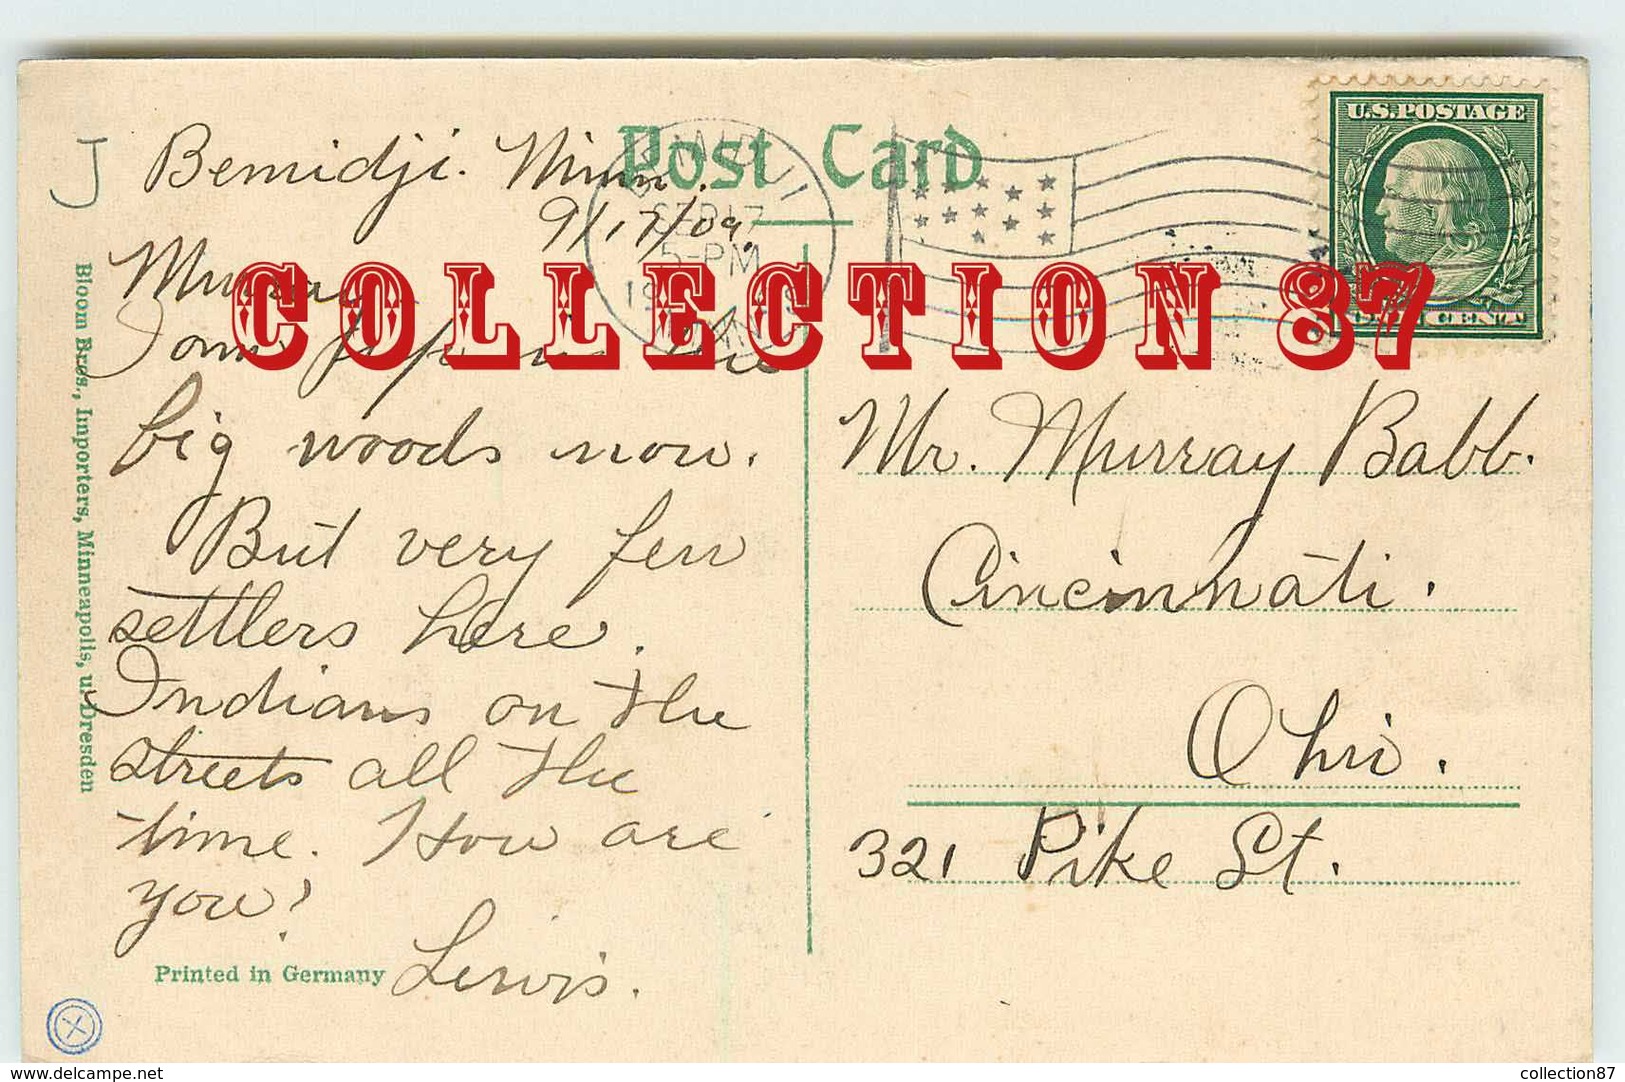 J
Post Card
U.S.POSTAGE
Bemidji. Minn.
9/17/09.
5-PM
Murray
COLLECTION 87
I am up in the
big woods now.
But very few
settlers here.
Indians on the
streets all the
time. How are
you?
Lewis.
Mr. Murray Babb.
Cincinnati.
Ohio.
321 Pike St.
Bloom Bros., Importers, Minneapolis, u. Dresden
Printed in Germany
www.delcampe.net
collection87